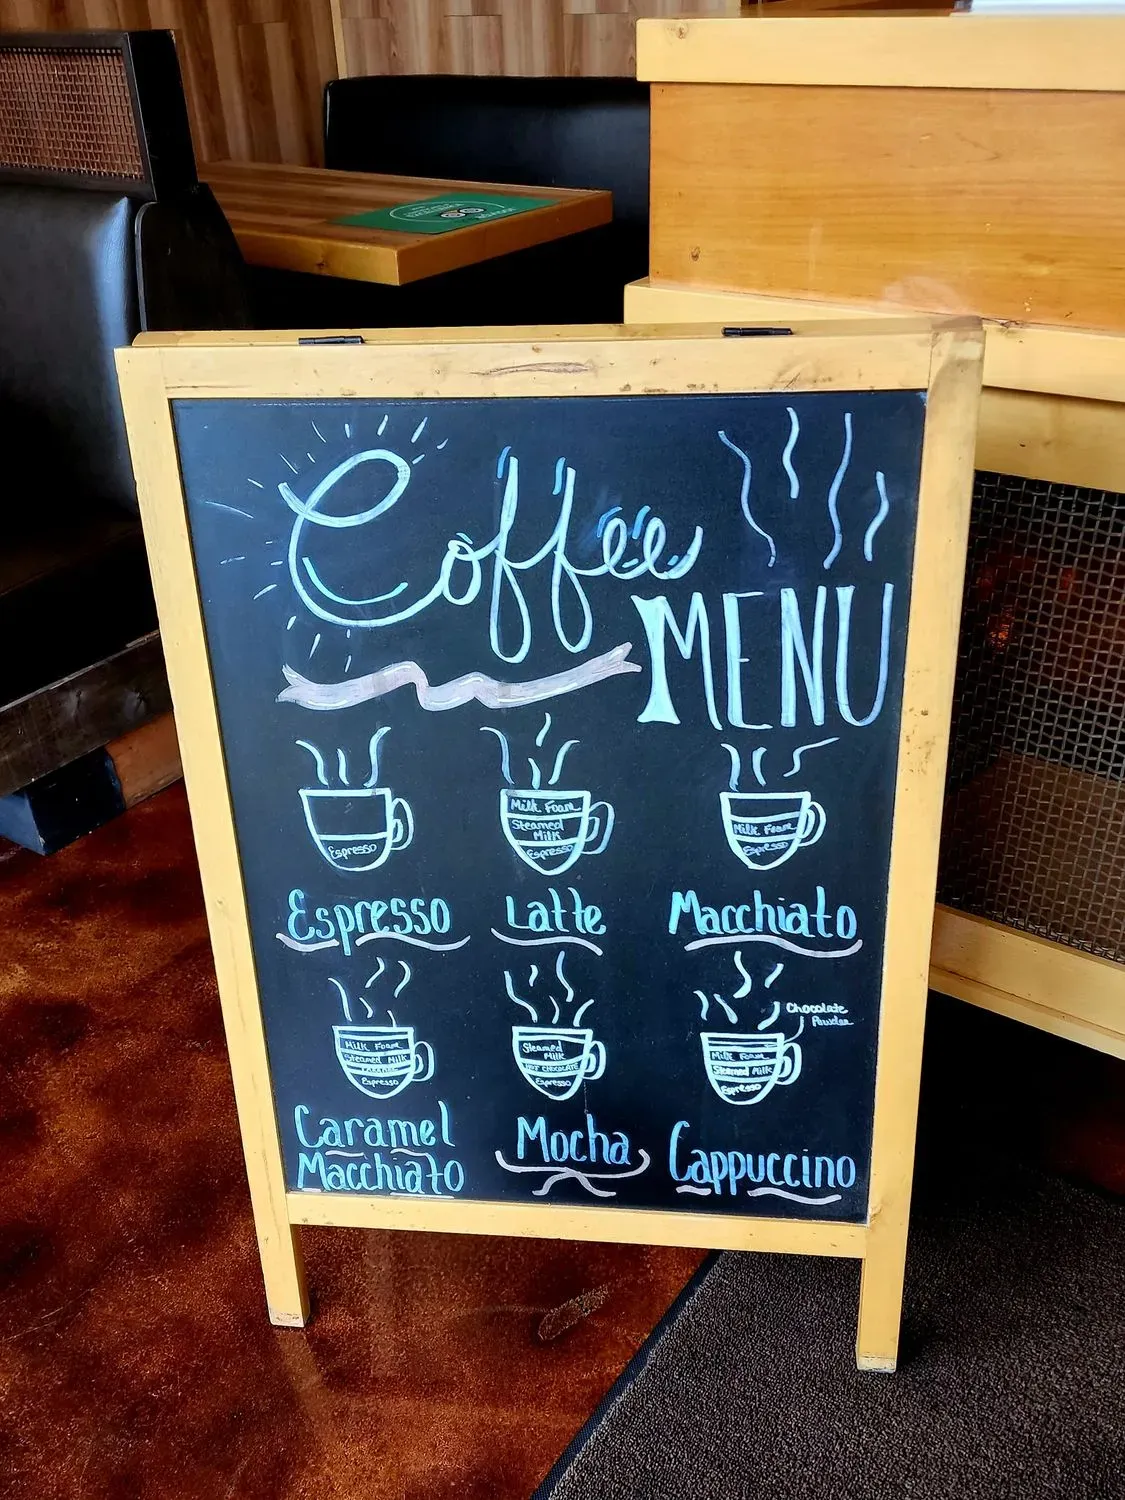 Coffee
MENU
Espresso
Espresso
Milk Foam
Steamed
Milk
Espresso
Latte
Milk Foam
Espresso
Macchiato
Milk Foam
Steamed Milk
CARAMEL
Espresso
Caramel
Macchiato
Steamed
Milk
HOT CHOCOLATE
Espresso
Mocha
Chocolate
Powder
Milk Foam
Steamed Milk
Espresso
Cappuccino